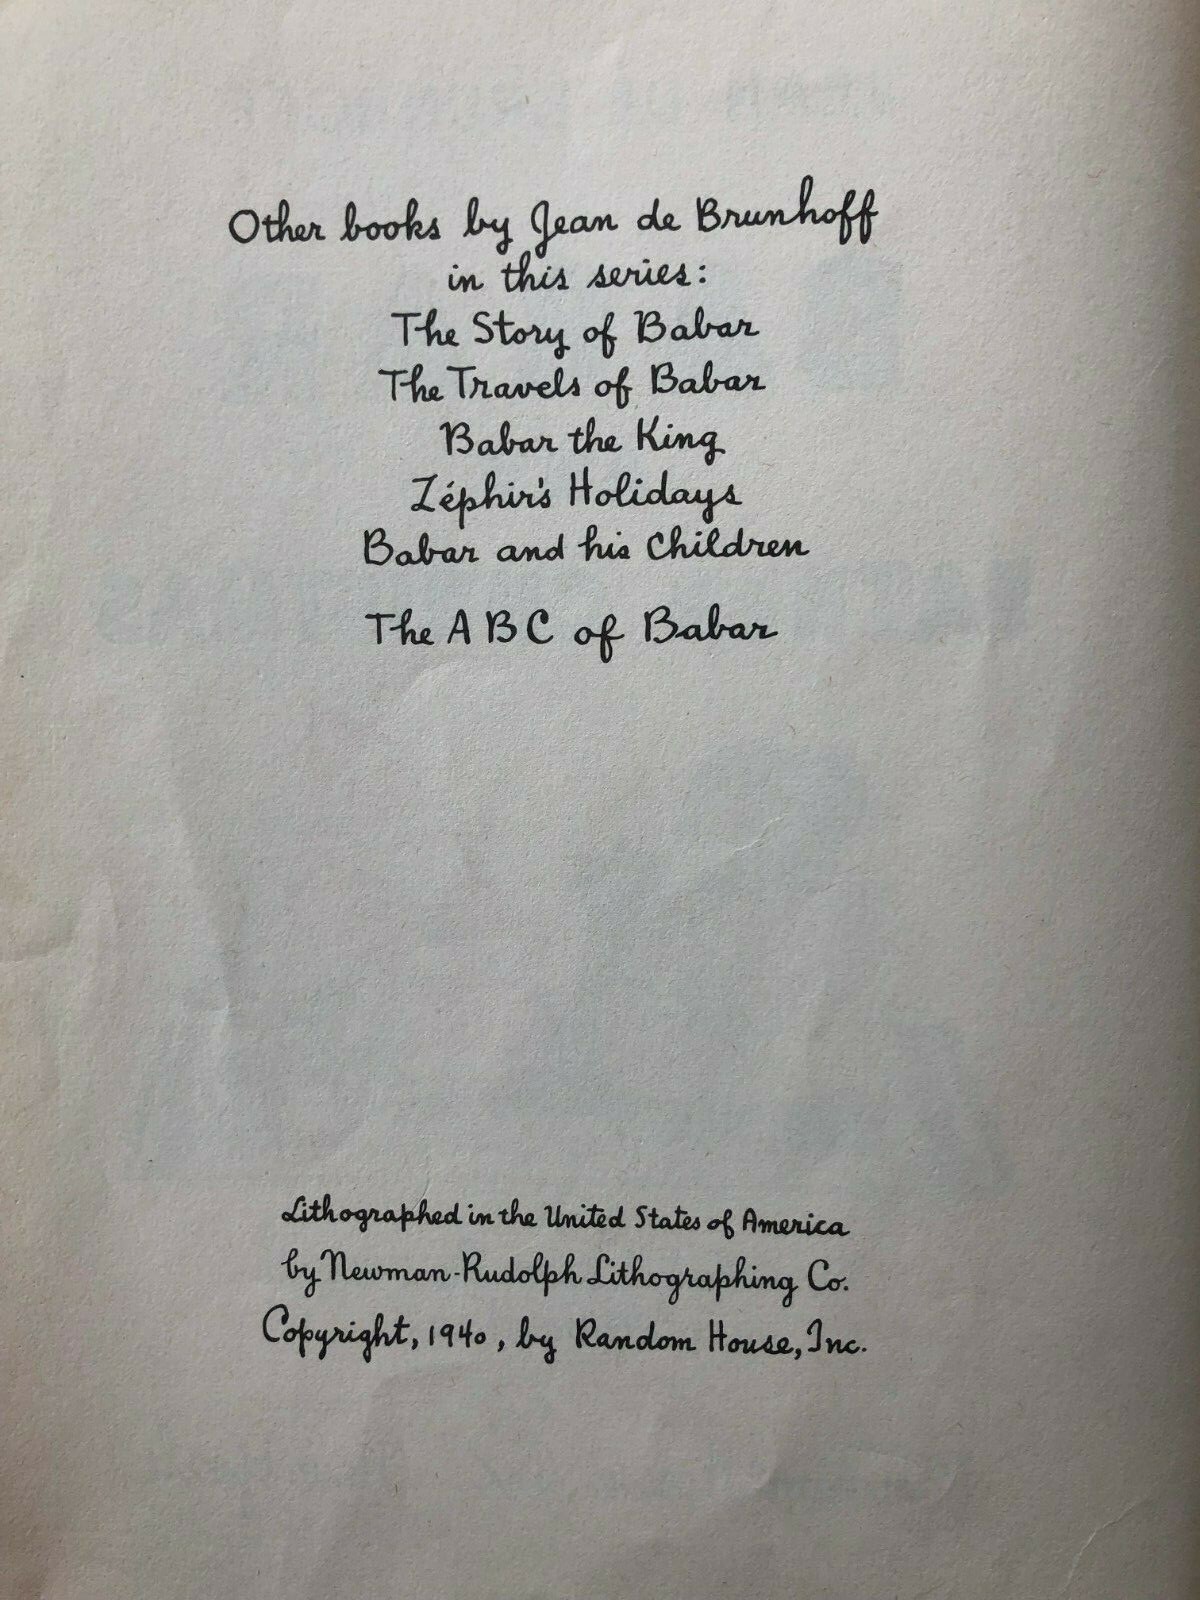 Other books by Jean de Brunhoff
in this series:
The Story of Babar
The Travels of Babar
Babar the King
Zéphir's Holidays
Babar and his Children
The A B C of Babar
Lithographed in the United States of America
by Newman-Rudolph Lithographing Co.
Copyright, 1940, by Random House, Inc.